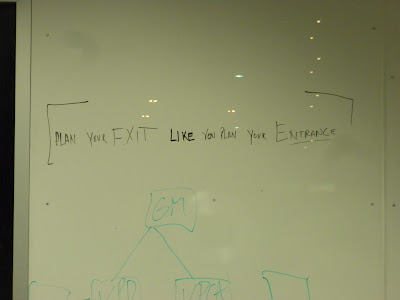 PLAN YOUR EXIT LIKE YOU PLAN YOUR ENTRANCE
GM